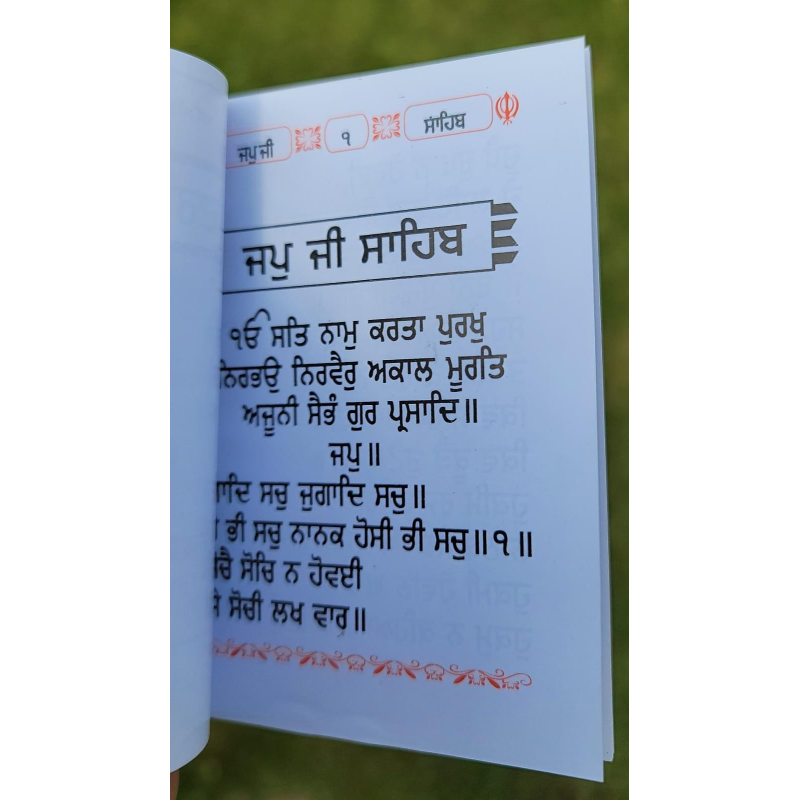 ਜਪੁ ਜੀ ੧ ਸਾਹਿਬ
ਜਪੁ ਜੀ ਸਾਹਿਬ
ੴ ਸਤਿ ਨਾਮੁ ਕਰਤਾ ਪੁਰਖੁ
ਨਿਰਭਉ ਨਿਰਵੈਰੁ ਅਕਾਲ ਮੂਰਤਿ
ਅਜੂਨੀ ਸੈਭੰ ਗੁਰ ਪ੍ਰਸਾਦਿ॥
ਜਪੁ॥
ਸਚੁ ਜੁਗਾਦਿ ਸਚੁ॥
ਭੀ ਸਚੁ ਨਾਨਕ ਹੋਸੀ ਭੀ ਸਚੁ॥੧॥
ਸੋਚਿ ਨ ਹੋਵਈ
ਸੋਚੀ ਲਖ ਵਾਰ॥